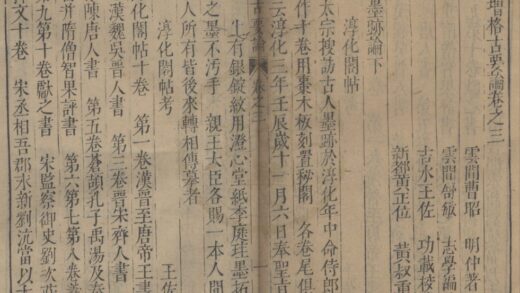 格古要論卷之三
雲間曹昭 明仲著
雲間舒敏 志學編
吉水王佐 功載校
新都黃正位 黃叔重
墨跡論下
淳化閣帖
太宗搜訪古人墨跡於淳化年中命侍郎
作十卷用棗木板刻置秘閣 各卷尾俱
云淳化三年壬辰歲十一月六日奉聖
古要論 卷之三 一
上有銀錠紋用澄心堂紙李庭珪墨拓
之墨不汚手 親王大臣各賜一本人間
人所有皆後來轉相傳摹者
淳化閣帖考 王佐
化閣帖十卷 第一卷漢晉至唐帝王書
漢魏吳晉人書 第三卷晉宋齊人書
陳唐人書 第五卷蒼頡孔子禹湯及
并隋僧智果評書 第六第七第八卷羲
第九第十卷獻之書 宋監察御史劉次
文十卷 宋丞相吾郡永新劉沆當以